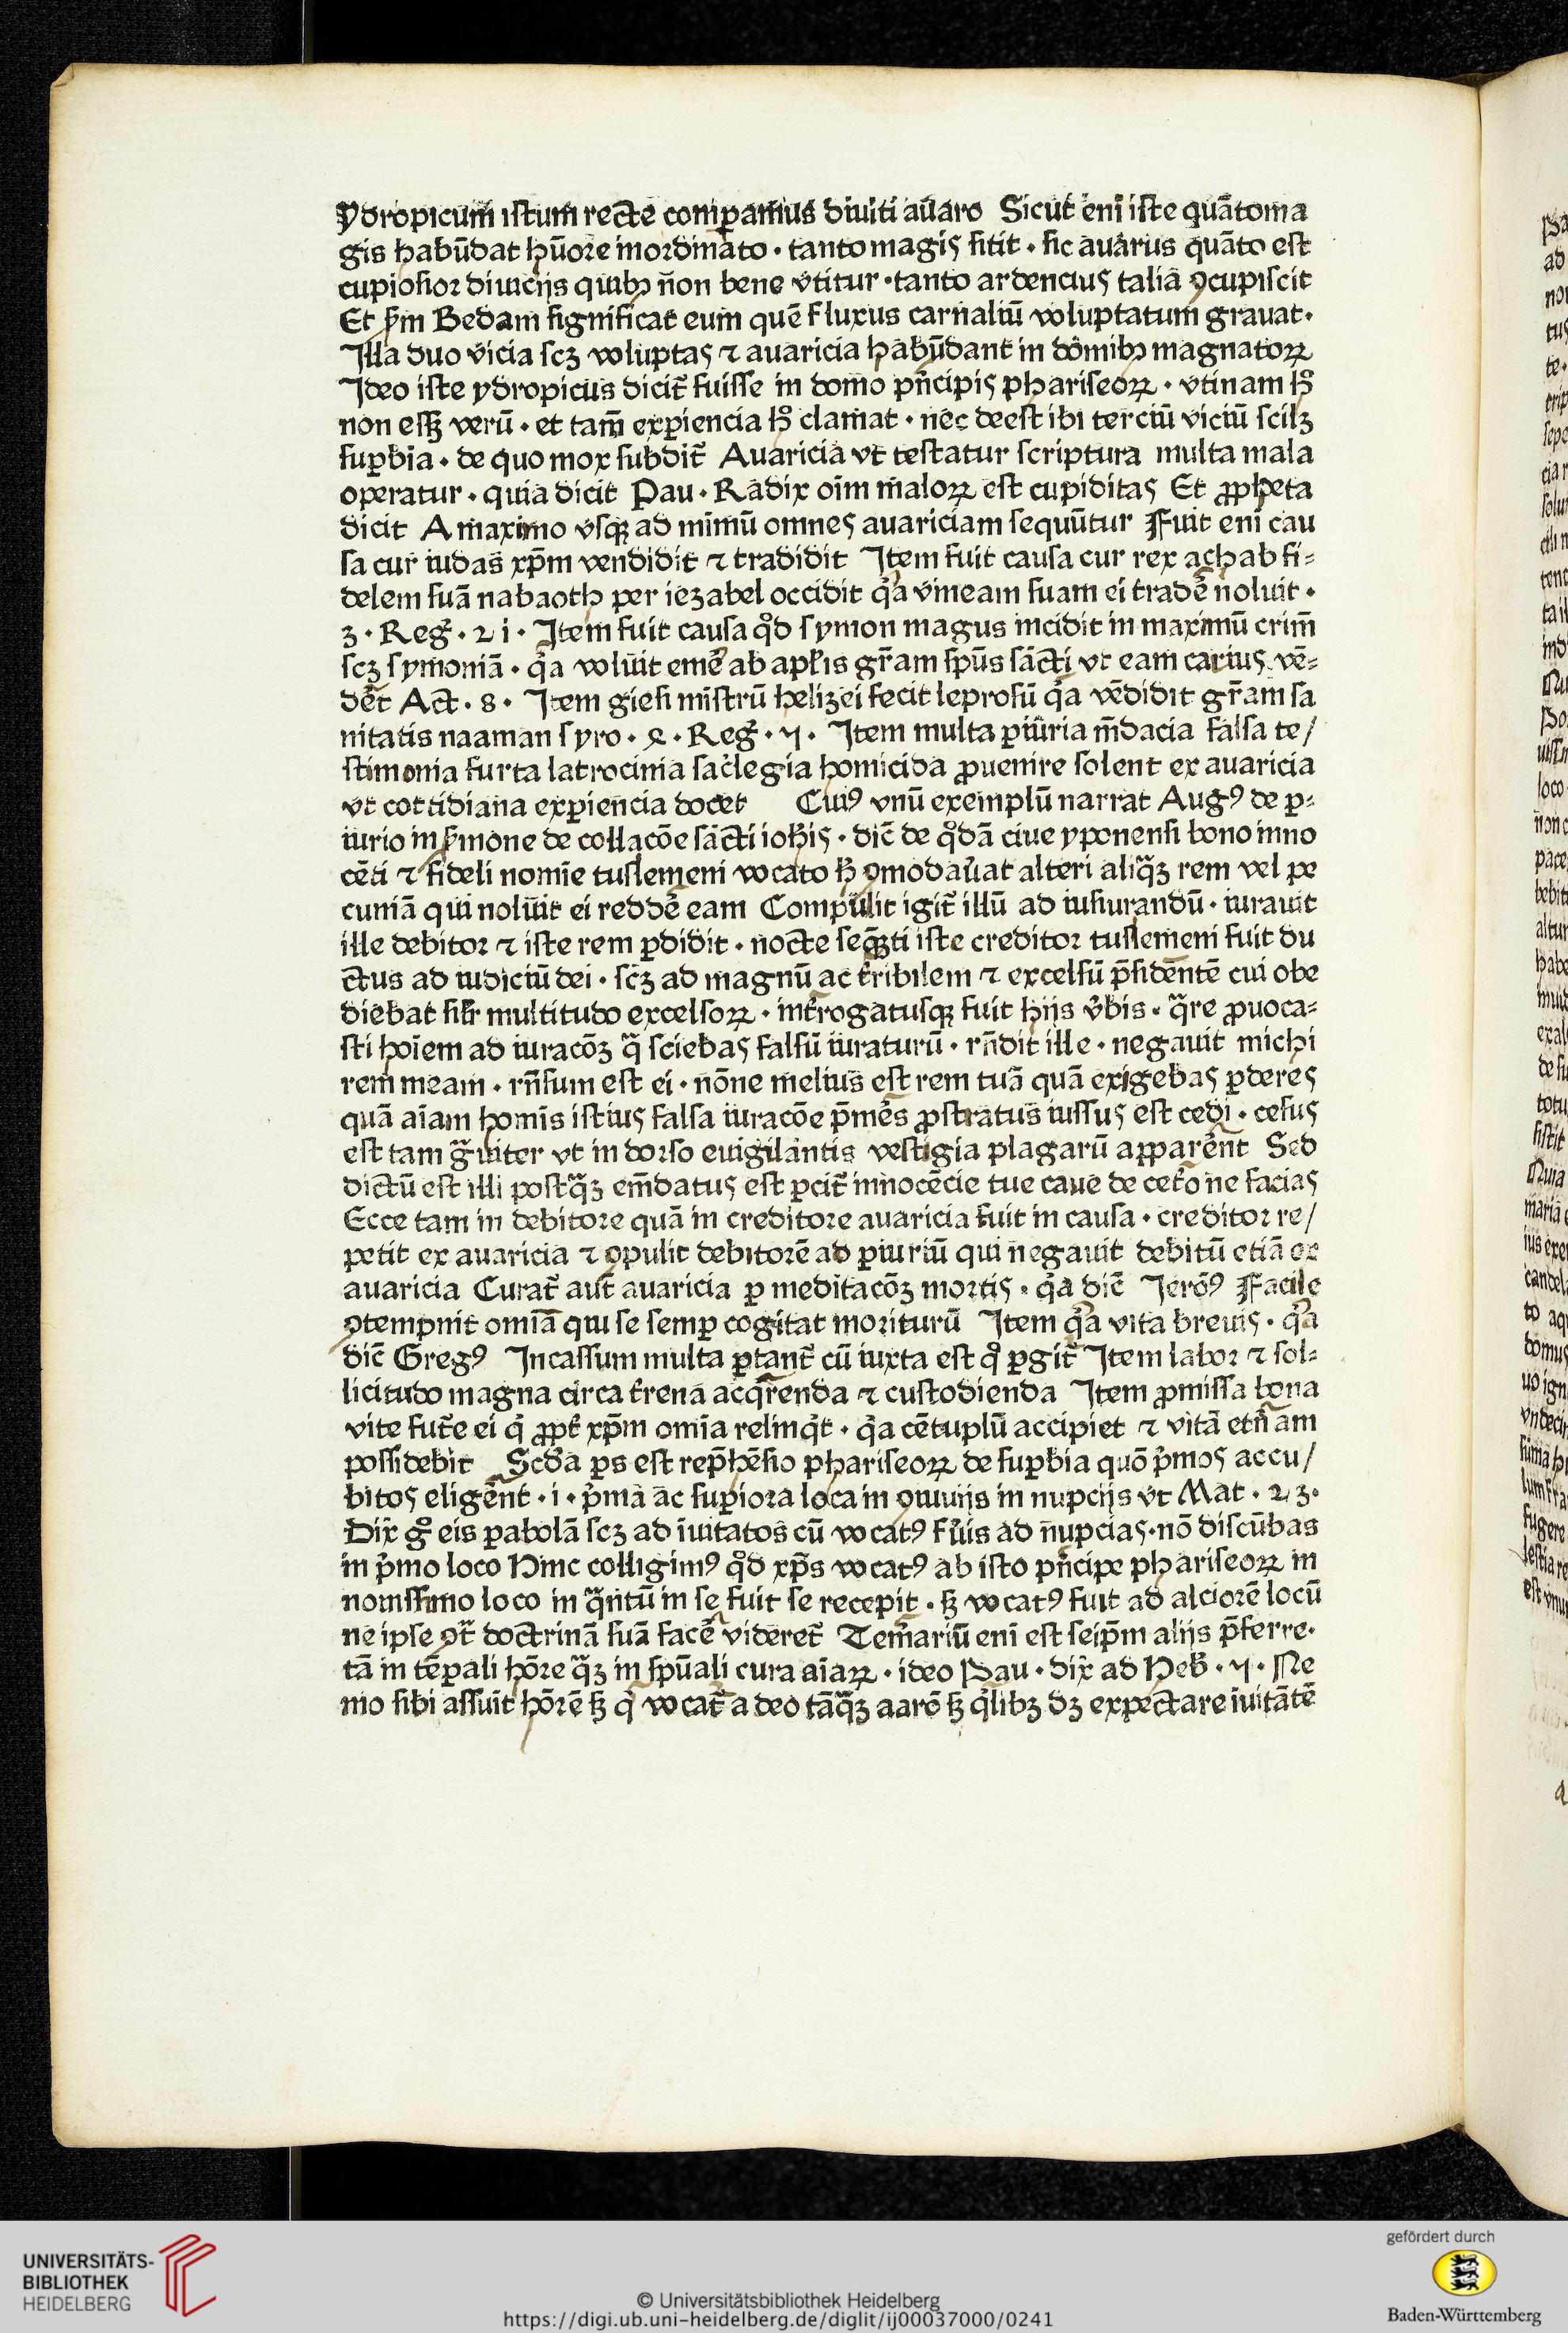 ydropicum istum recte comꝑamus diuiti auaro Sicut eni iste quātoma
gis habūdat hūore inordinato · tanto magis sitit · sic auarus quāto est
cupiosior diuicijs quibꝫ non bene vtitur · tanto ardencius talia ꝯcupiscit
Et ẜm Bedam significat eum quē fluxus carnaliū voluptatum grauat ·
Illa duo vicia scꝫ voluptas ⁊ auaricia habūdant in domibꝫ magnatoꝝ
Ideo iste ydropicus dicit̄ fuisse in domo pn̄cipis phariseoꝝ · vtinam hͦ
non essꝫ verū · et tam̄ exꝑiencia hͦ clamat · nec deest ibi terciū viciū scilꝫ
suꝑbia · de quo mox subdit̄ Auaricia vt testatur scriptura multa mala
operatur · quia dicit Pau · Radix oīm maloꝝ est cupiditas Et ꝓpheta
dicit A maximo vsqꝫ ad mimū omnes auariciam sequūtur Fuit eni cau
sa cur iudas xp̄m vendidit ⁊ tradidit Item fuit causa cur rex achab fi⸗
delem suā nabaoth per iezabel occidit qͥa vineam suam ei tradē noluit ·
3 · Reg̉ · 21 · Item fuit causa qͦd symon magus incidit in maximū crim̄
scꝫ symoniā · qͥa voluit emē ab apl̄is gr̄am sp̄us sācti vt eam carius vē⸗
dēt Act · 8 · Item giesi mīstrū helizei fecit leprosū qͥa vēdidit gr̄am sa
nitatis naaman syro · 4 · Reg̉ · 7 · Item multa ꝑiuria m̄dacia falsa te/
stimonia furta latrocinia sac̉legia homicida ꝓuenire solent ex auaricia
vt cottidiana exꝑiencia docet Cuiꝰ vnū exemplū narrat Augꝰ de ꝑ⸗
iurio in ẜmone de collacōe sācti ioh̄is · dic̄ de qͦdā ciue yponensi bono inno
cēti ⁊ fideli nomīe tuslemeni vocato hͦ ꝯmodau̓at alteri aliq̄ꝫ rem vel pe
cuniā qui noluit ei reddē eam Compulit igit̄ illū ad iusiurandū · iurauit
ille debitor ⁊ iste rem ꝑdidit · nocte seq̄ꝫti iste creditor tuslemeni fuit du
ctus ad iudiciū dei · scꝫ ad magnū ac tr̄ibilem ⁊ excelsū p̄sidentē cui obe
diebat sil̄r multitudo excelsoꝝ · int̄rogatusqꝫ fuit hijs v̉bis · qͣre ꝓuoca⸗
sti hoīem ad iuracōꝫ qͣ sciebas falsū iuraturū · rn̄dit ille · negauit michi
rem meam · rn̄sum est ei · nōne melius est rem tuā quā exigebas ꝑderes
quā aīam homīs istius falsa iuracōe p̄mēs ꝓstratus iussus est cedi · cesus
est tam gͣuiter vt in dorso euigilantis vestigia plagarū apparēnt Sed
dictū est illi postq̄ꝫ em̄datus est ꝑcit̄ innocēcie tue caue de cet̉o ne facias
Ecce tam in debitore quā in creditore auaricia fuit in causa · creditor re/
petit ex auaricia ⁊ ꝯpulit debitorē ad ꝑiuriū qui negauit debitū etiā ex
auaricia Curat̄ aut̄ auaricia ꝑ meditacōꝫ mortis · qͥa dic̄ Jeroꝰ Facile
ꝯtempnit omīa qui se semꝑ cogitat moriturū Item qͥa vita breuis · qͥa
dic̄ Gregꝰ Incassum multa ꝑtant̄ cū iuxta est qͦ ꝑgit̄ Item labor ⁊ sol⸗
licitudo magna circa t̄rena acqͥrenda ⁊ custodienda Item ꝓmissa bona
vite fut̄e ei qͥ ꝓpt̄ xp̄m omīa relinqͥt · qͥa cētuplū accipiet ⁊ vitā et̄n am
possidebit Scd̄a ꝑs est rep̄hēsio phariseoꝝ de suꝑbia quō pͥmos accu/
bitos eligēnt · i · pͥma ac suꝑiora loca in ꝯuiuijs in nupcijs vt Mat · 23 ·
Dix̄ gͦ eis ꝑabolā scꝫ ad īuitatos cū vocatꝰ fu̓is ad nupcias · nō discūbas
in pͥmo loco Hinc colligimꝰ qͦd xp̄s vocatꝰ ab isto pn̄cipe phariseoꝝ in
nouissimo loco in qͣntū in se fuit se recepit · sꝫ vocatꝰ fuit ad alciorē locū
ne ipse ꝯt̄ doctrinā suā facē videret̄ Tem̓ariū eni est seip̄m alijs p̄ferre ·
tā in tēꝑali hōre q̄ꝫ in sp̄uali cura aīaꝝ · ideo Pau · dix̄ ad Heb̄ · 7 · Ne
mo sibi assuīt hōrē sꝫ qͥ vocat̄ a deo tāq̄ꝫ aarō sꝫ qͥlibꝫ dꝫ expectare iuitātē
UNIVERSITÄTS-
BIBLIOTHEK
HEIDELBERG
© Universitätsbibliothek Heidelberg
https://digi.ub.uni-heidelberg.de/diglit/ij00037000/0241
gefördert durch
Baden-Württemberg